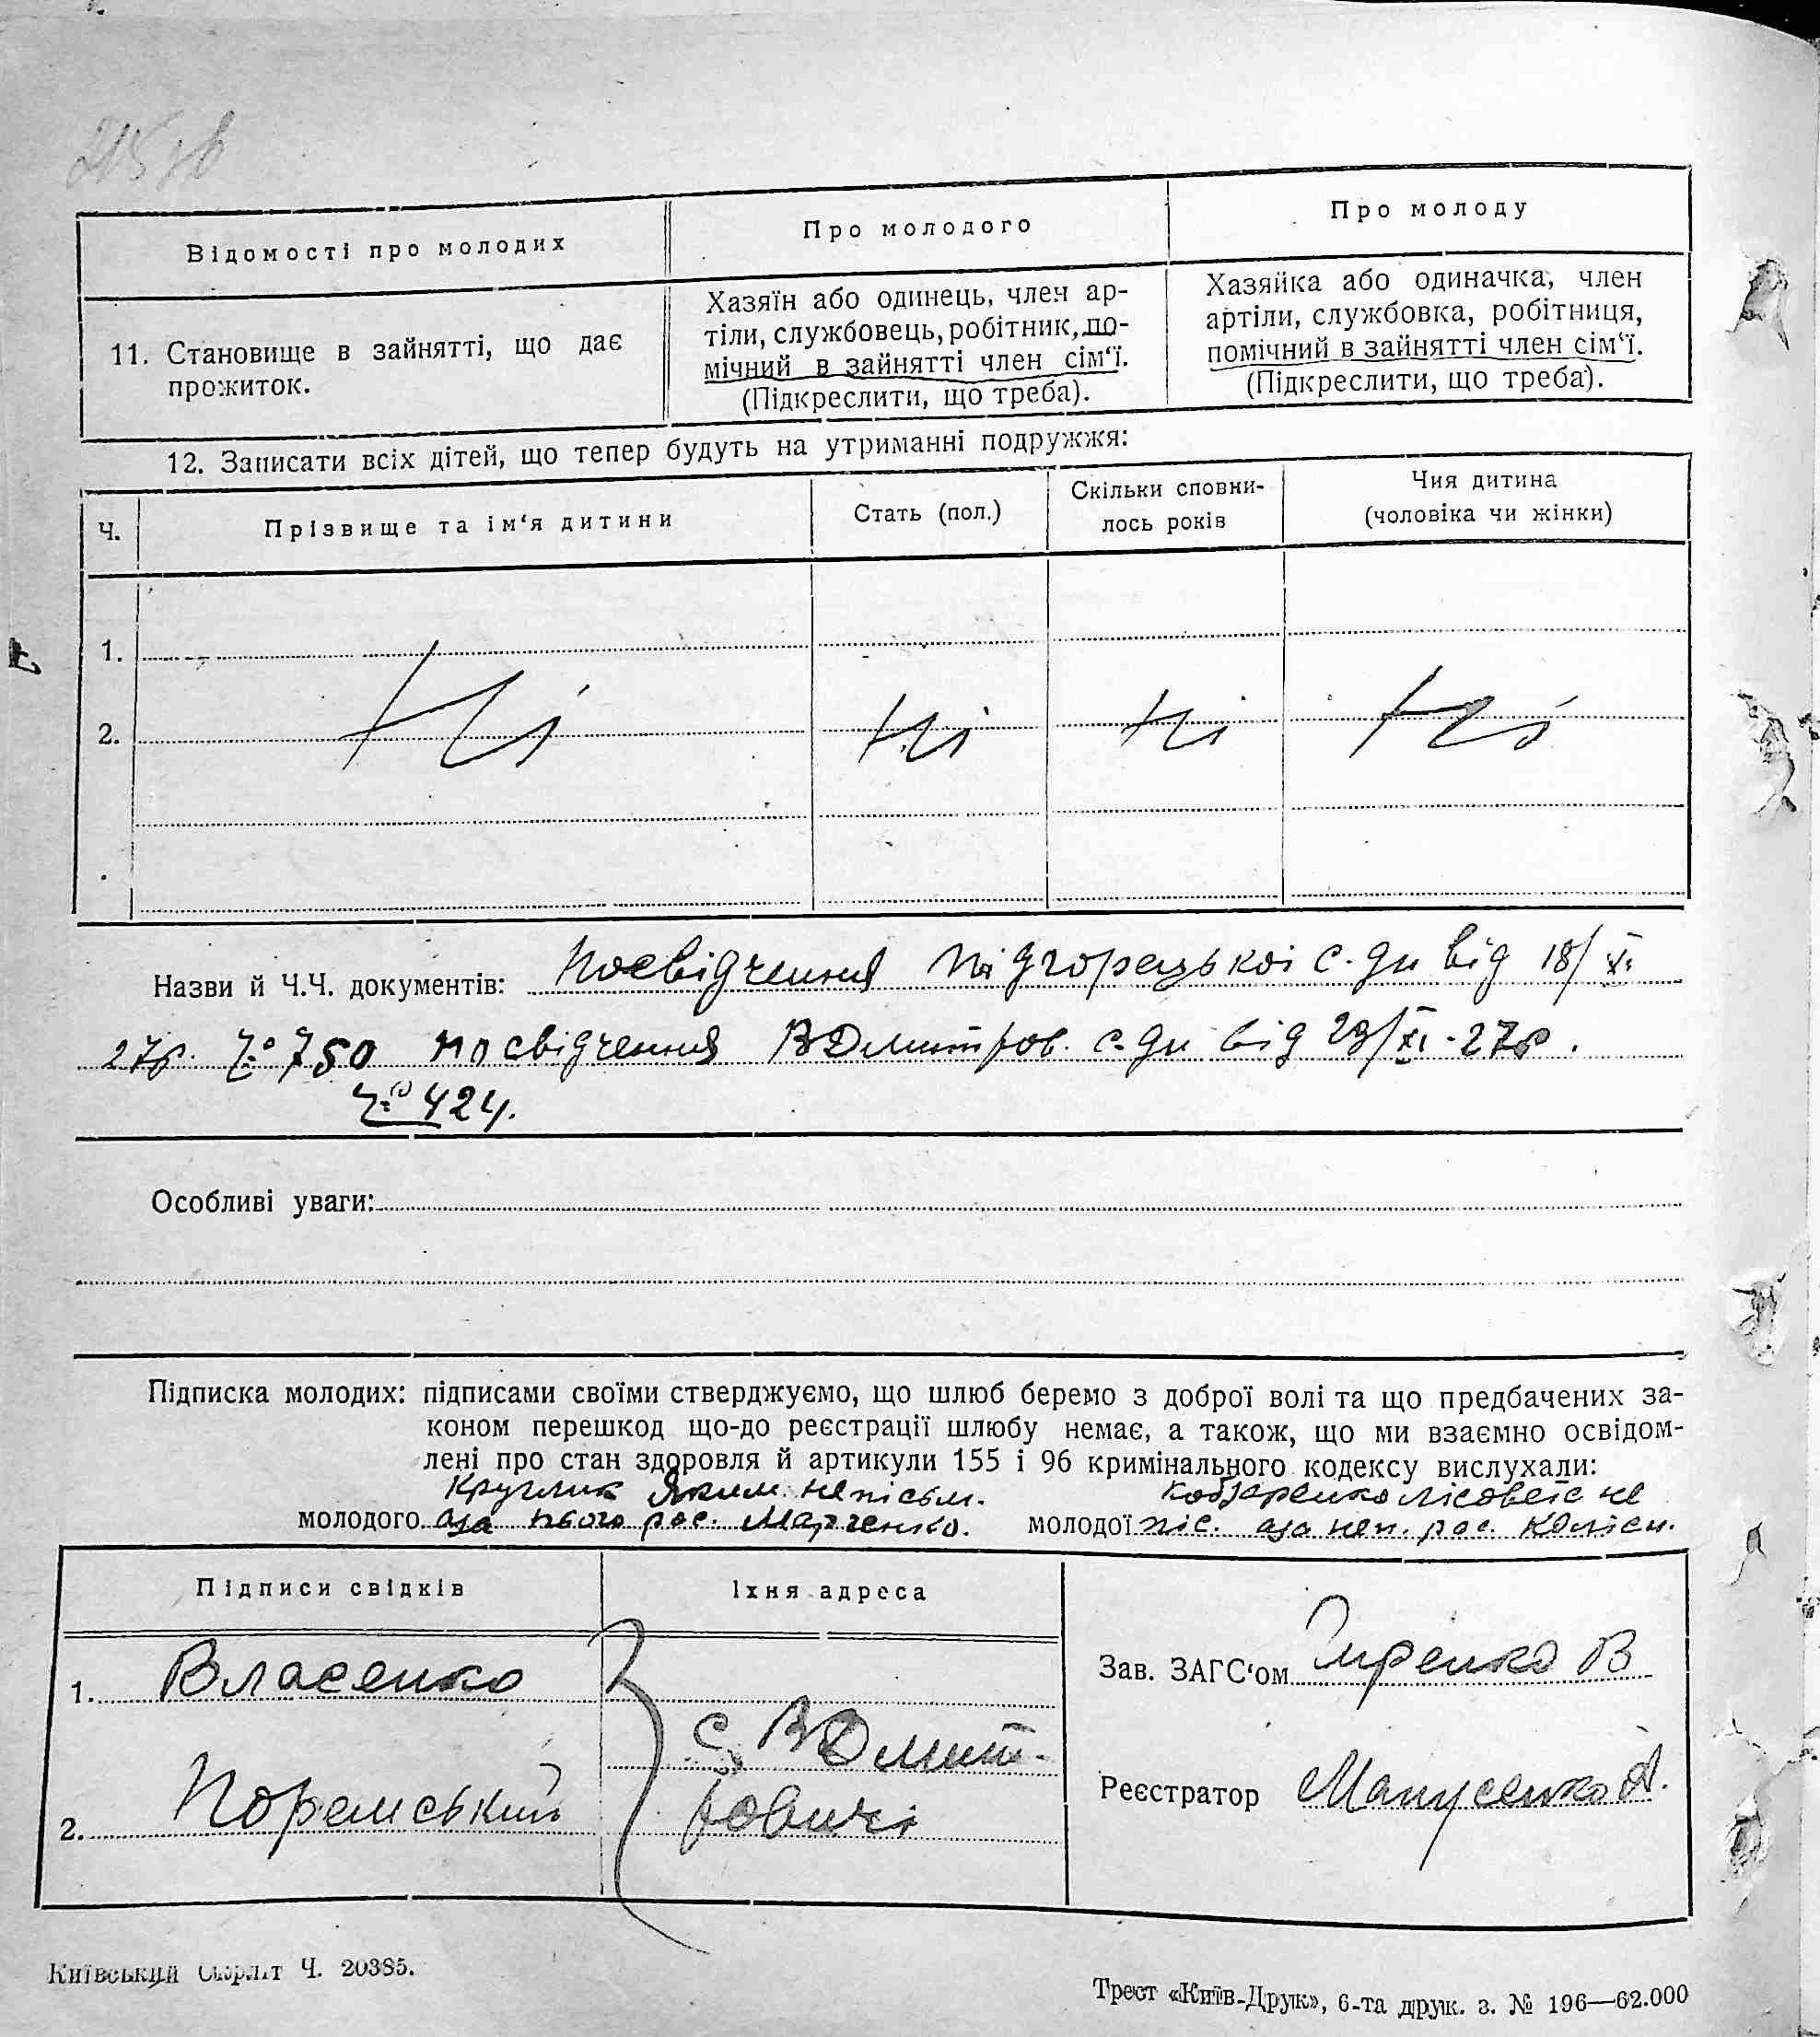 215 зв
Відомості про молодих
Про молодого
Про молоду
11. Становище в зайнятті, що дає
прожиток.
Хазяїн або одинець, член ар-
тіли, службовець, робітник, по-
мічний в зайнятті член сім‘ї.
(Підкреслити, що треба).
Хазяйка або одиначка, член
артіли, службовка, робітниця,
помічний в зайнятті член сім‘ї.
(Підкреслити, що треба).
12. Записати всіх дітей, що тепер будуть на утриманні подружжя:
Ч.
Прізвище та ім‘я дитини
Стать (пол.)
Скільки сповни-
лось років
Чия дитина
(чоловіка чи жінки)
1.
2.
Ні Ні Ні Ні
Назви й Ч.Ч. документів: Посвідчення Підгорецької с-ди від 18/XI
27р. № 750 посвідчення ВДмитров. с-ди від 29/XI-27р.
№ 424.
Особливі уваги:
Підписка молодих: підписами своїми стверджуємо, що шлюб беремо з доброї волі та що предбачених за-
коном перешкод що-до реєстрації шлюбу немає, а також, що ми взаємно освідом-
лені про стан здоровля й артикули 155 і 96 кримінального кодексу вислухали:
Круглик Яким непісьм.
молодого за нього рос. Марченко.
Кобзаренко лісовета не
молодої піс. за неп. рос.
Підписи свідків
Їхня адреса
1. Власенко
2. Поремський
с. ВДмит-
ровичі
Зав. ЗАГС‘ом В
Реєстратор Манусенко А.
Київський Окрліт Ч. 20385.
Трест «Київ-Друк», 6-та друк. з. № 196—62.000